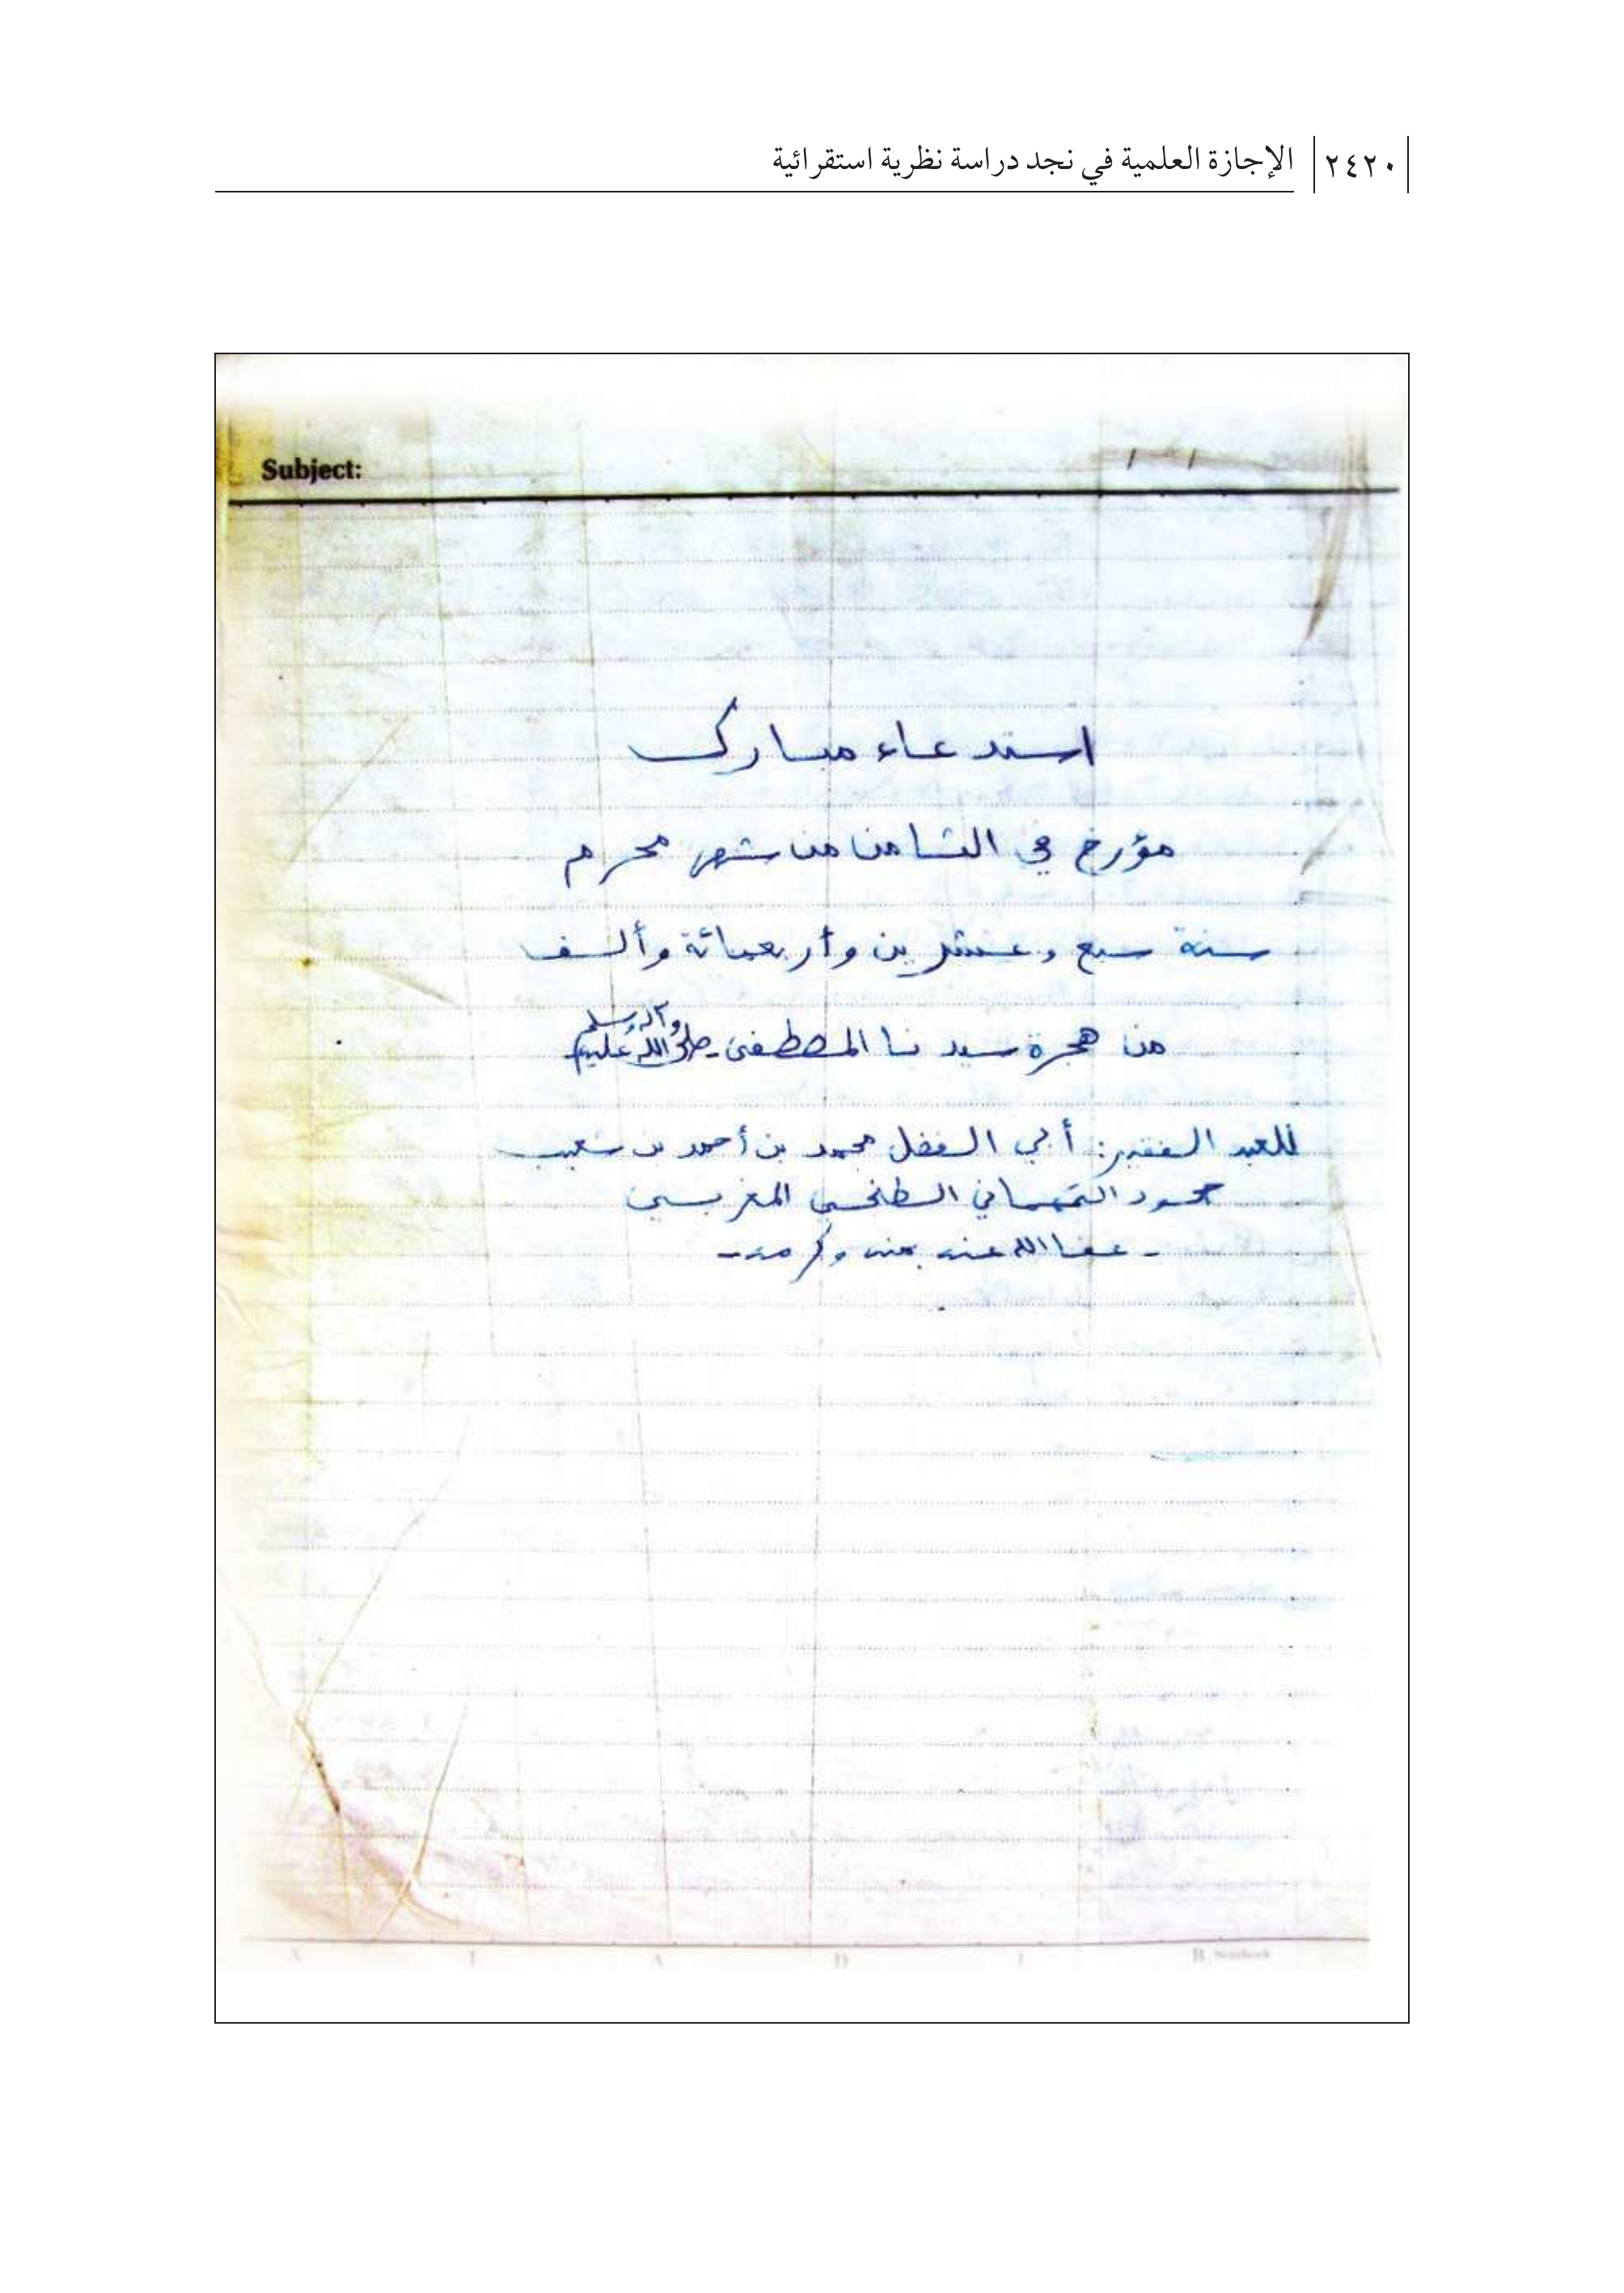 ٢٤٢٠ الإجازة العلمية في نجد دراسة نظرية استقرائية
Subject:
/ /
استدعاء مبارك
مؤرخ في الثامن من شهر محرم
سنة سبع وعشرين وأربعمائة وألف
من هجرة سيدنا المصطفى - صلى الله عليه وآله وسلم
للعبد الفقير: أبي الفضل محمد بن أحمد بن شعيب
المغربي
- عفا الله عنه بمنه وكرمه -